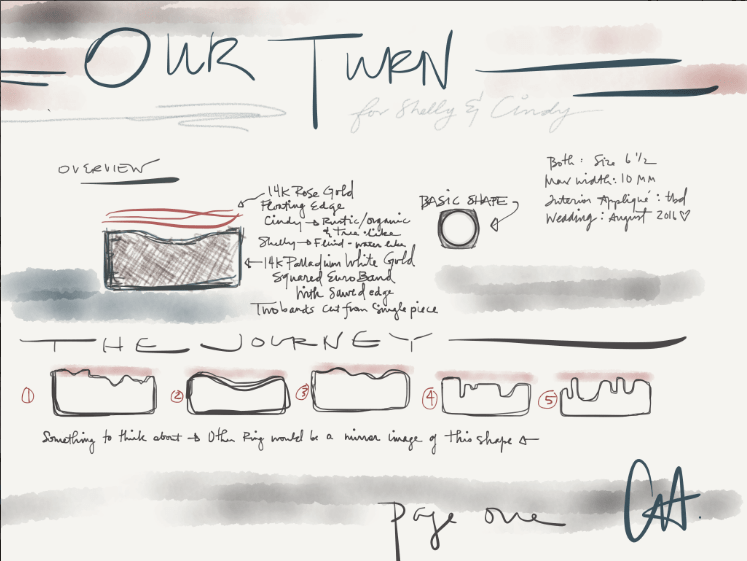 OUR TURN
for Shelly & Cindy
OVERVIEW
14K Rose Gold
Floating Edge
Cindy → Rustic/organic
& tree-like
Shelly → Fluid - water like
14K Palladium White Gold
Squared Euro Band
With Sawed edge
Two bands cut from single piece
BASIC SHAPE
Both: Size 6 1/2
Max width: 10 MM
Interior Appliqué: tbd
Wedding: August 2016 ♡
THE JOURNEY
1 2 3 4 5
Something to think about → Other Ring would be a mirror image of this shape
Page one